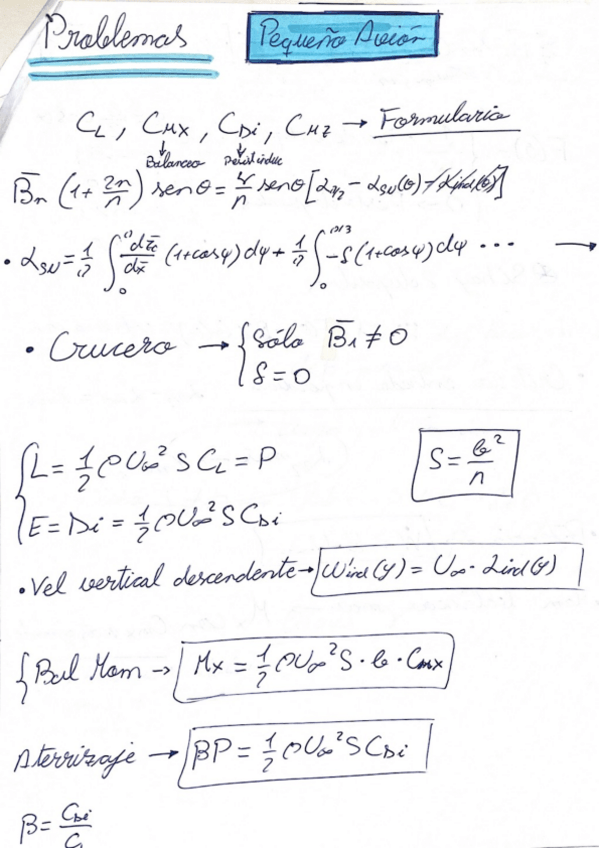 Problemas
Pequeño Avión
C_L, C_MX, C_Di, C_MZ → Formulario
↓ Balanceo ↓ Resist induc
B̄n (1 + 2n/Λ) sen θ = 4/Λ sen θ [α_N/2 - α_SN(θ) - αind(θ)]
• α_SN = 1/π ∫₀^π dz_c/dx (1+cosφ)dφ + 1/π ∫₀^π/3 -δ(1+cosφ)dφ ... →
• Crucero → { Sólo B̄₁ ≠ 0
δ = 0
{ L = 1/2 ρ U∞² S C_L = P
S = b²/Λ
E = Di = 1/2 ρ U∞² S C_Di
• Vel vertical descendente → W'ind(y) = U∞ · αind(y)
{ Bal Mom → Mx = 1/2 ρ U∞² S · b · Cmx
Aterrizaje → βP = 1/2 ρ U∞² S C_Di
β = C_Di/C